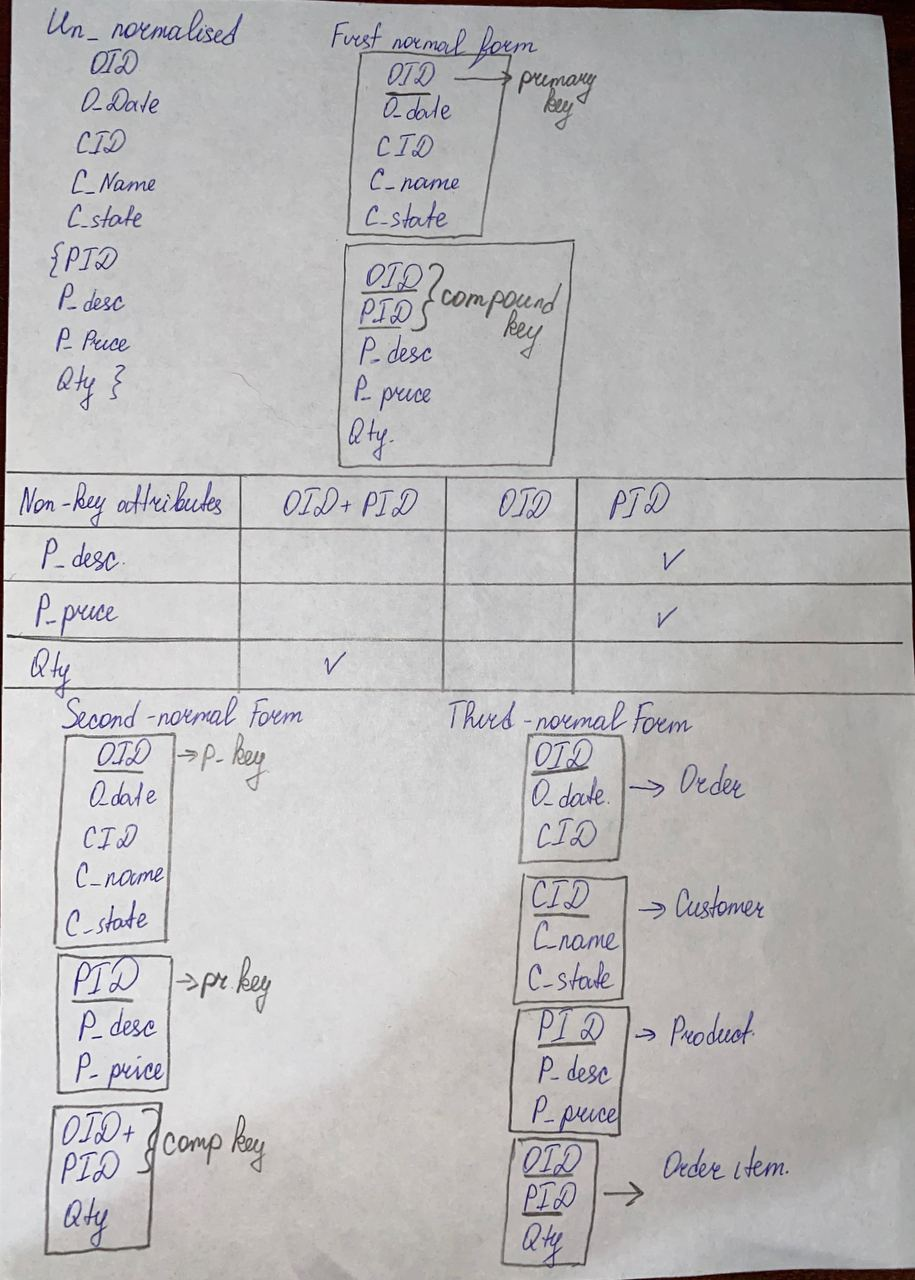 Un_ normalised
OID
O_Date
CID
C_Name
C_state
{PID
P_desc
P_Price
Qty }
First normal form
OID → primary key
O_date
CID
C_name
C_state
OID } compound key
PID
P_desc
P_price
Qty.
Non-key attributes OID + PID OID PID
P_desc. ✓
P_price ✓
Qty ✓
Second-normal Form
OID → P_key
O_date
CID
C_name
C_state
PID → pr. key
P_desc
P_price
OID+ } comp key
PID
Qty
Third-normal Form
OID
O_date. → Order
CID
CID → Customer
C_name
C_state
PID → Product.
P_desc
P_price
OID
PID → Order item.
Qty